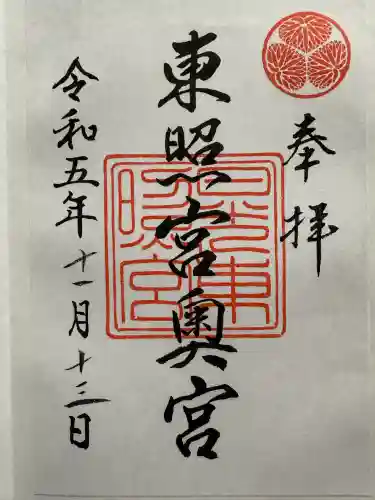 奉拝
東照宮奥宮
日光東照宮
令和五年十一月十三日